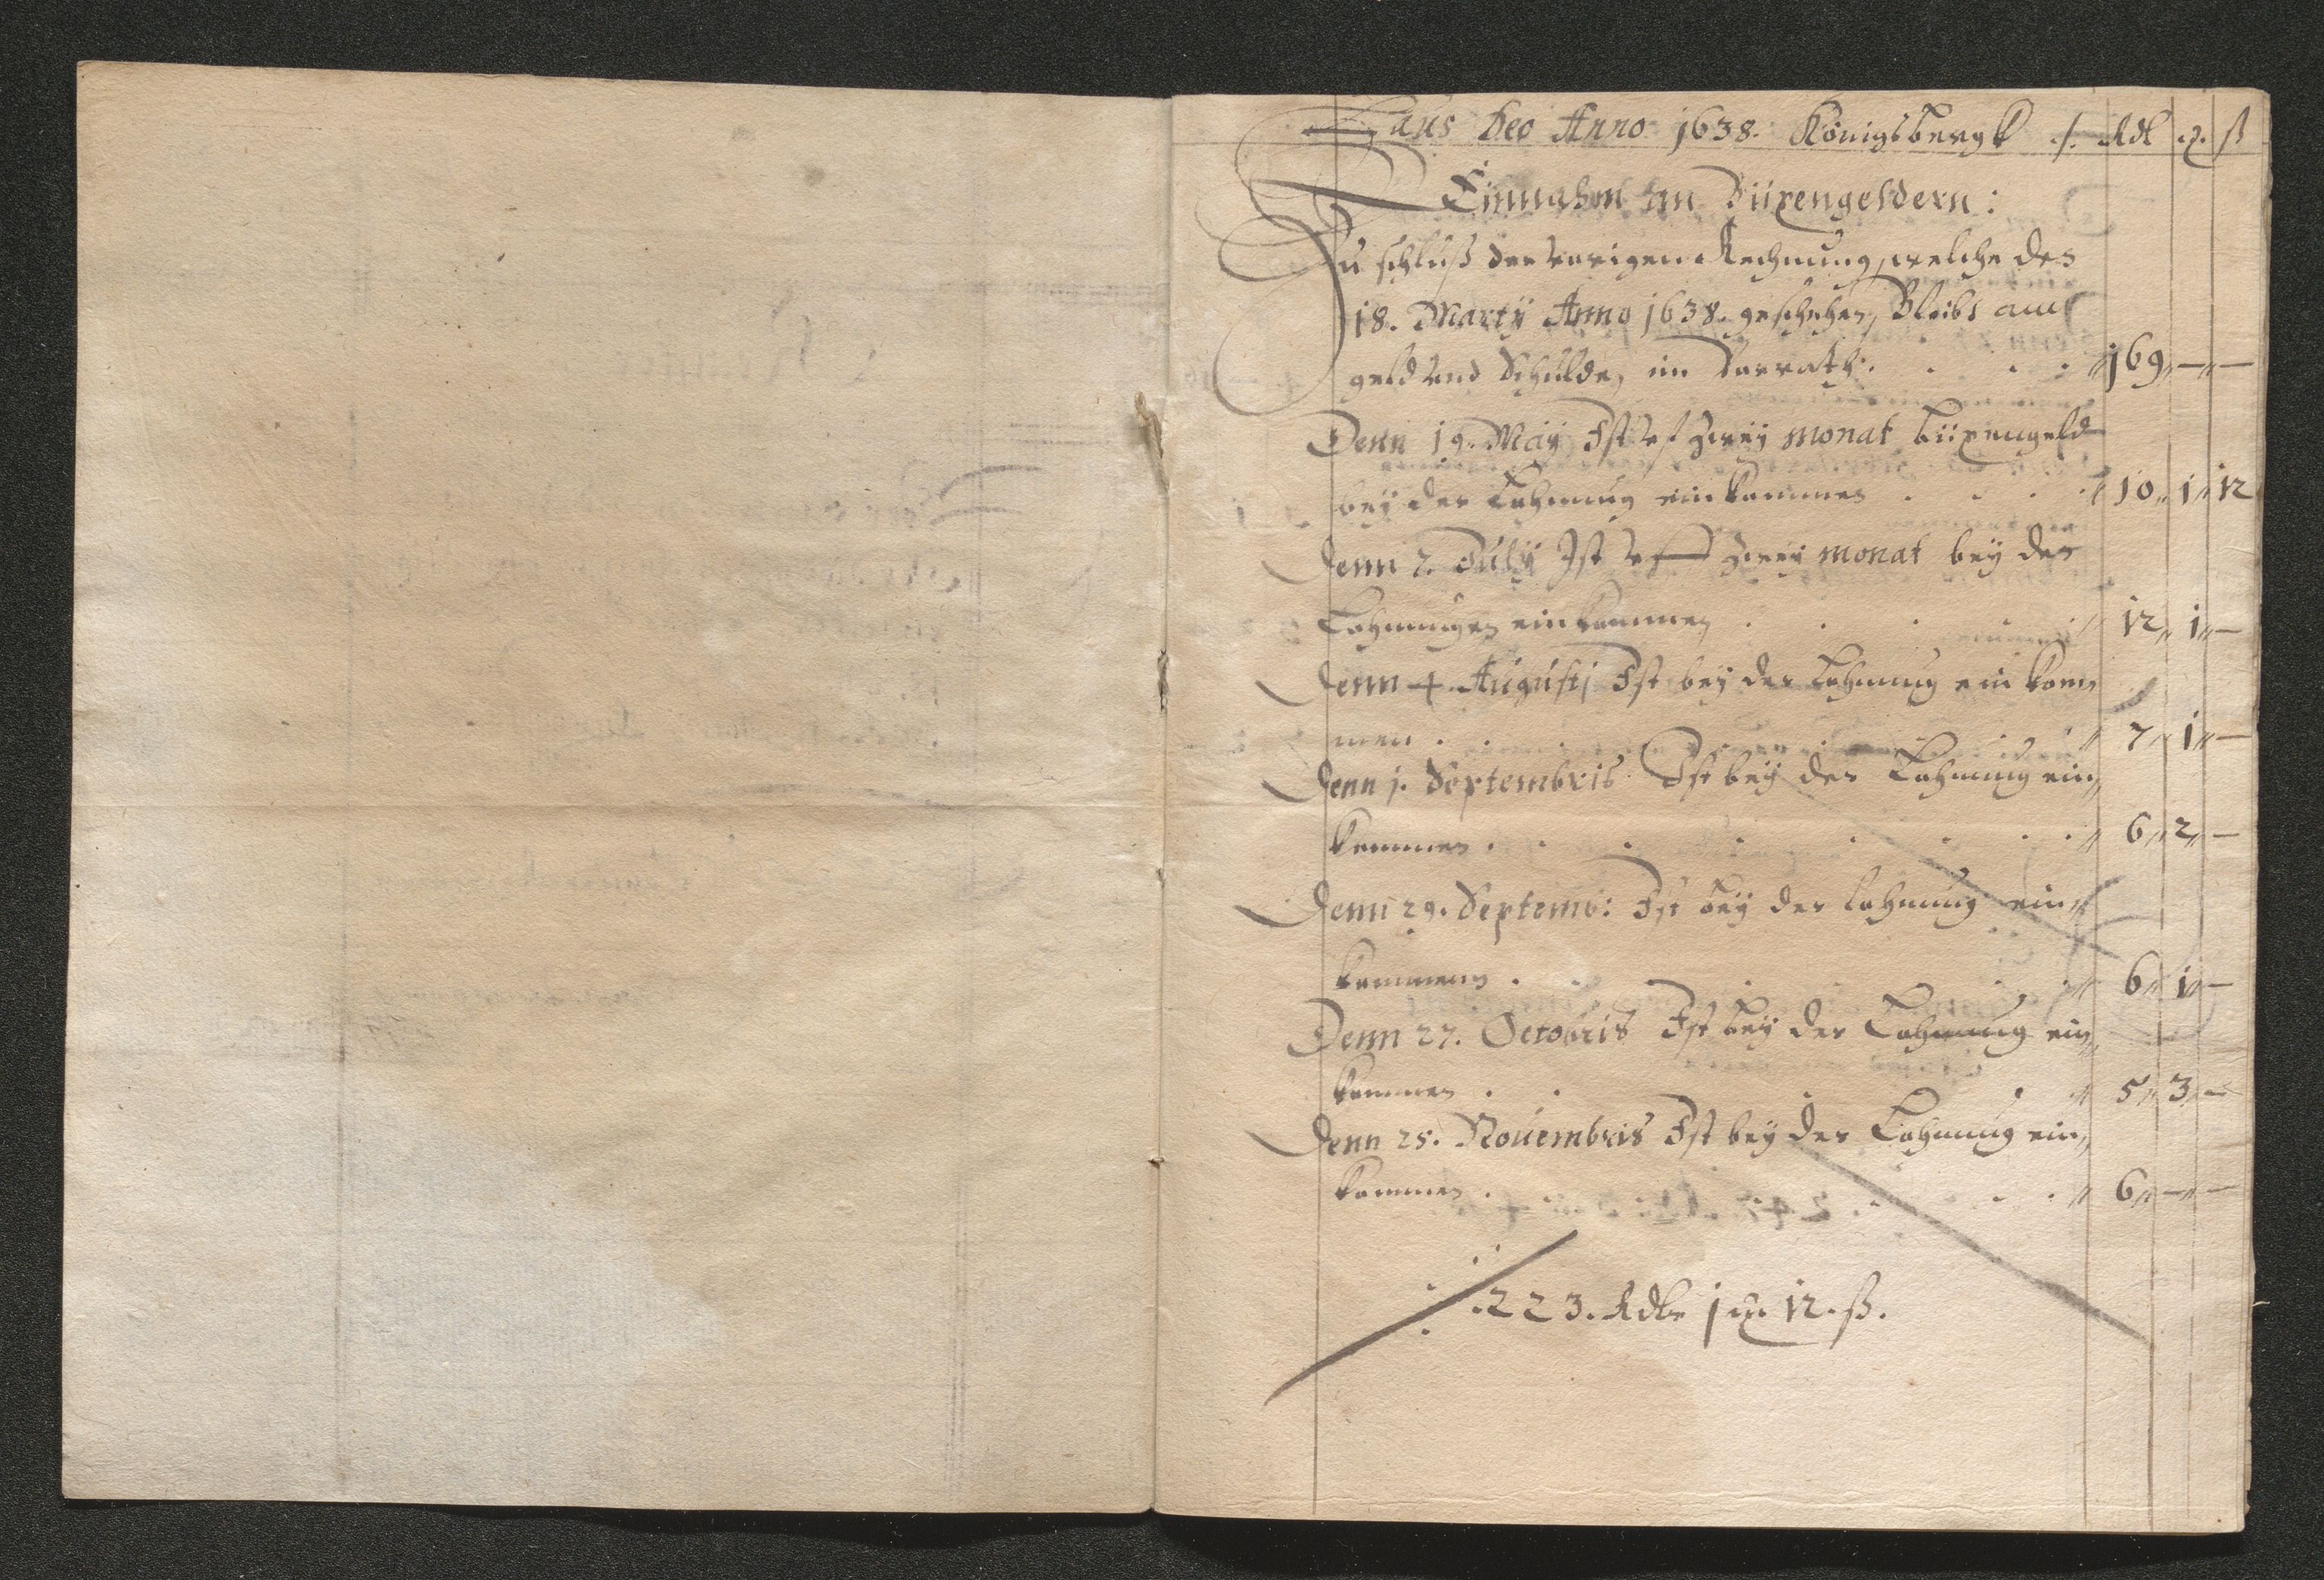 Laus Deo Anno 1638. Königsbergk ./. Rdl ort ß
Einnahm an Büxengeldern:
Zu schluß der vorigen Rechnung, welche den
18. Marty Anno 1638. geschehen, Bleibt ann
geld vnd Schulden, im Vorrath: . . . 169 — —
Denn 19. May Ist vf zwey monat büxengeld
bey der Lohnung einkommen . . . 10 1 12
Denn 2. July Ist vf zwey monat bey den
Lohnungen einkommen . . . 12 1 —
Denn 4. Augusti Ist bey der Lohnung ein kom
men . . . 7 1 —
Denn 1. Septembris Ist bey der Lohnung ein
kommen . . . 6 2 —
Denn 29. Septemb: Ist bey der lohnung ein
kommenn . . . 6 1 —
Denn 27. Octobris Ist bey der Lohnung ein
kommen . . . 5 3 —
Denn 25. Nouembris Ist bey der Lohnung ein
kommen . . . 6 — —
223. Rdlr 1 ort 12. ß.